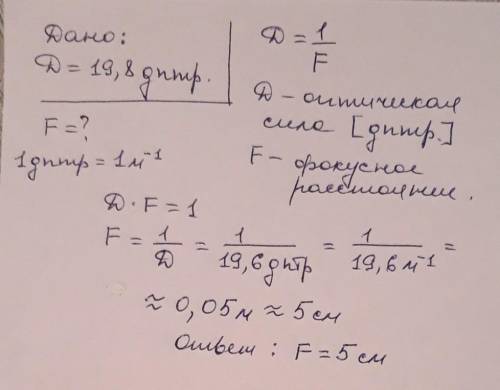 Дано:
D = 19,8 дптр.
F = ?
1 дптр = 1 м⁻¹
D = 1/F
D – оптическая
сила [дптр.]
F – фокусное
расстояние.
D · F = 1
F = 1/D = 1/19,6 дптр = 1/19,6 м⁻¹ =
≈ 0,05 м ≈ 5 см
Ответ : F = 5 см